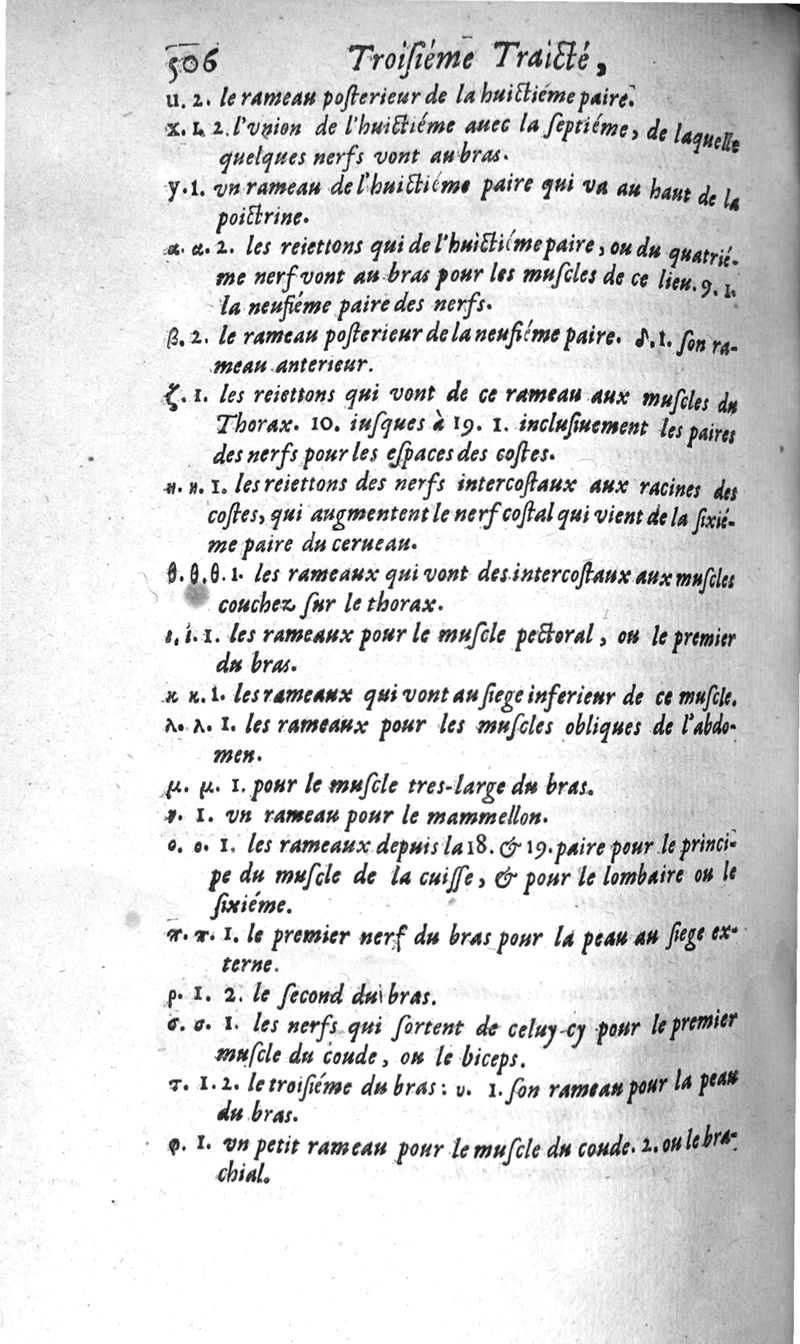 506 Troisiéme Traicté,
u. 2. le rameau posterieur de la huictiéme paire.
x. 1. 2. l'vnion de l'huictiéme auec la septiéme, de laquelle
quelques nerfs vont au bras.
y. 1. vn rameau de l'huictiéme paire qui va au haut de la
poictrine.
α. α. 2. les reiettons qui de l'huictiéme paire, ou du quatrié-
me nerf vont au bras pour les muscles de ce lieu. 9. 1.
la neufiéme paire des nerfs.
β. 2. le rameau posterieur de la neufiéme paire. δ. 1. son ra-
meau anterieur.
ζ. 1. les reiettons qui vont de ce rameau aux muscles du
Thorax. 10. iusques à 19. 1. inclusiuement les paires
des nerfs pour les espaces des costes.
η. η. 1. les reiettons des nerfs intercostaux aux racines des
costes, qui augmentent le nerf costal qui vient de la sixié-
me paire du cerueau.
θ. θ. θ. 1. les rameaux qui vont des intercostaux aux muscles
couchez sur le thorax.
ι, ι. 1. les rameaux pour le muscle pectoral, ou le premier
du bras.
κ κ. 1. les rameaux qui vont au siege inferieur de ce muscle.
λ. λ. 1. les rameaux pour les muscles obliques de l'abdo-
men.
μ. μ. 1. pour le muscle tres-large du bras.
ν. 1. vn rameau pour le mammellon.
ο. ο. 1. les rameaux depuis la 18. & 19. paire pour le princi-
pe du muscle de la cuisse, & pour le lombaire ou le
sixiéme.
π. π. 1. le premier nerf du bras pour la peau au siege ex-
terne.
ρ. 1. 2. le second du bras.
σ. σ. 1. les nerfs qui sortent de celuy-cy pour le premier
muscle du coude, ou le biceps.
τ. 1. 2. le troisiéme du bras: υ. 1. son rameau pour la peau
du bras.
φ. 1. vn petit rameau pour le muscle du coude. 2. ou le bra-
chial.